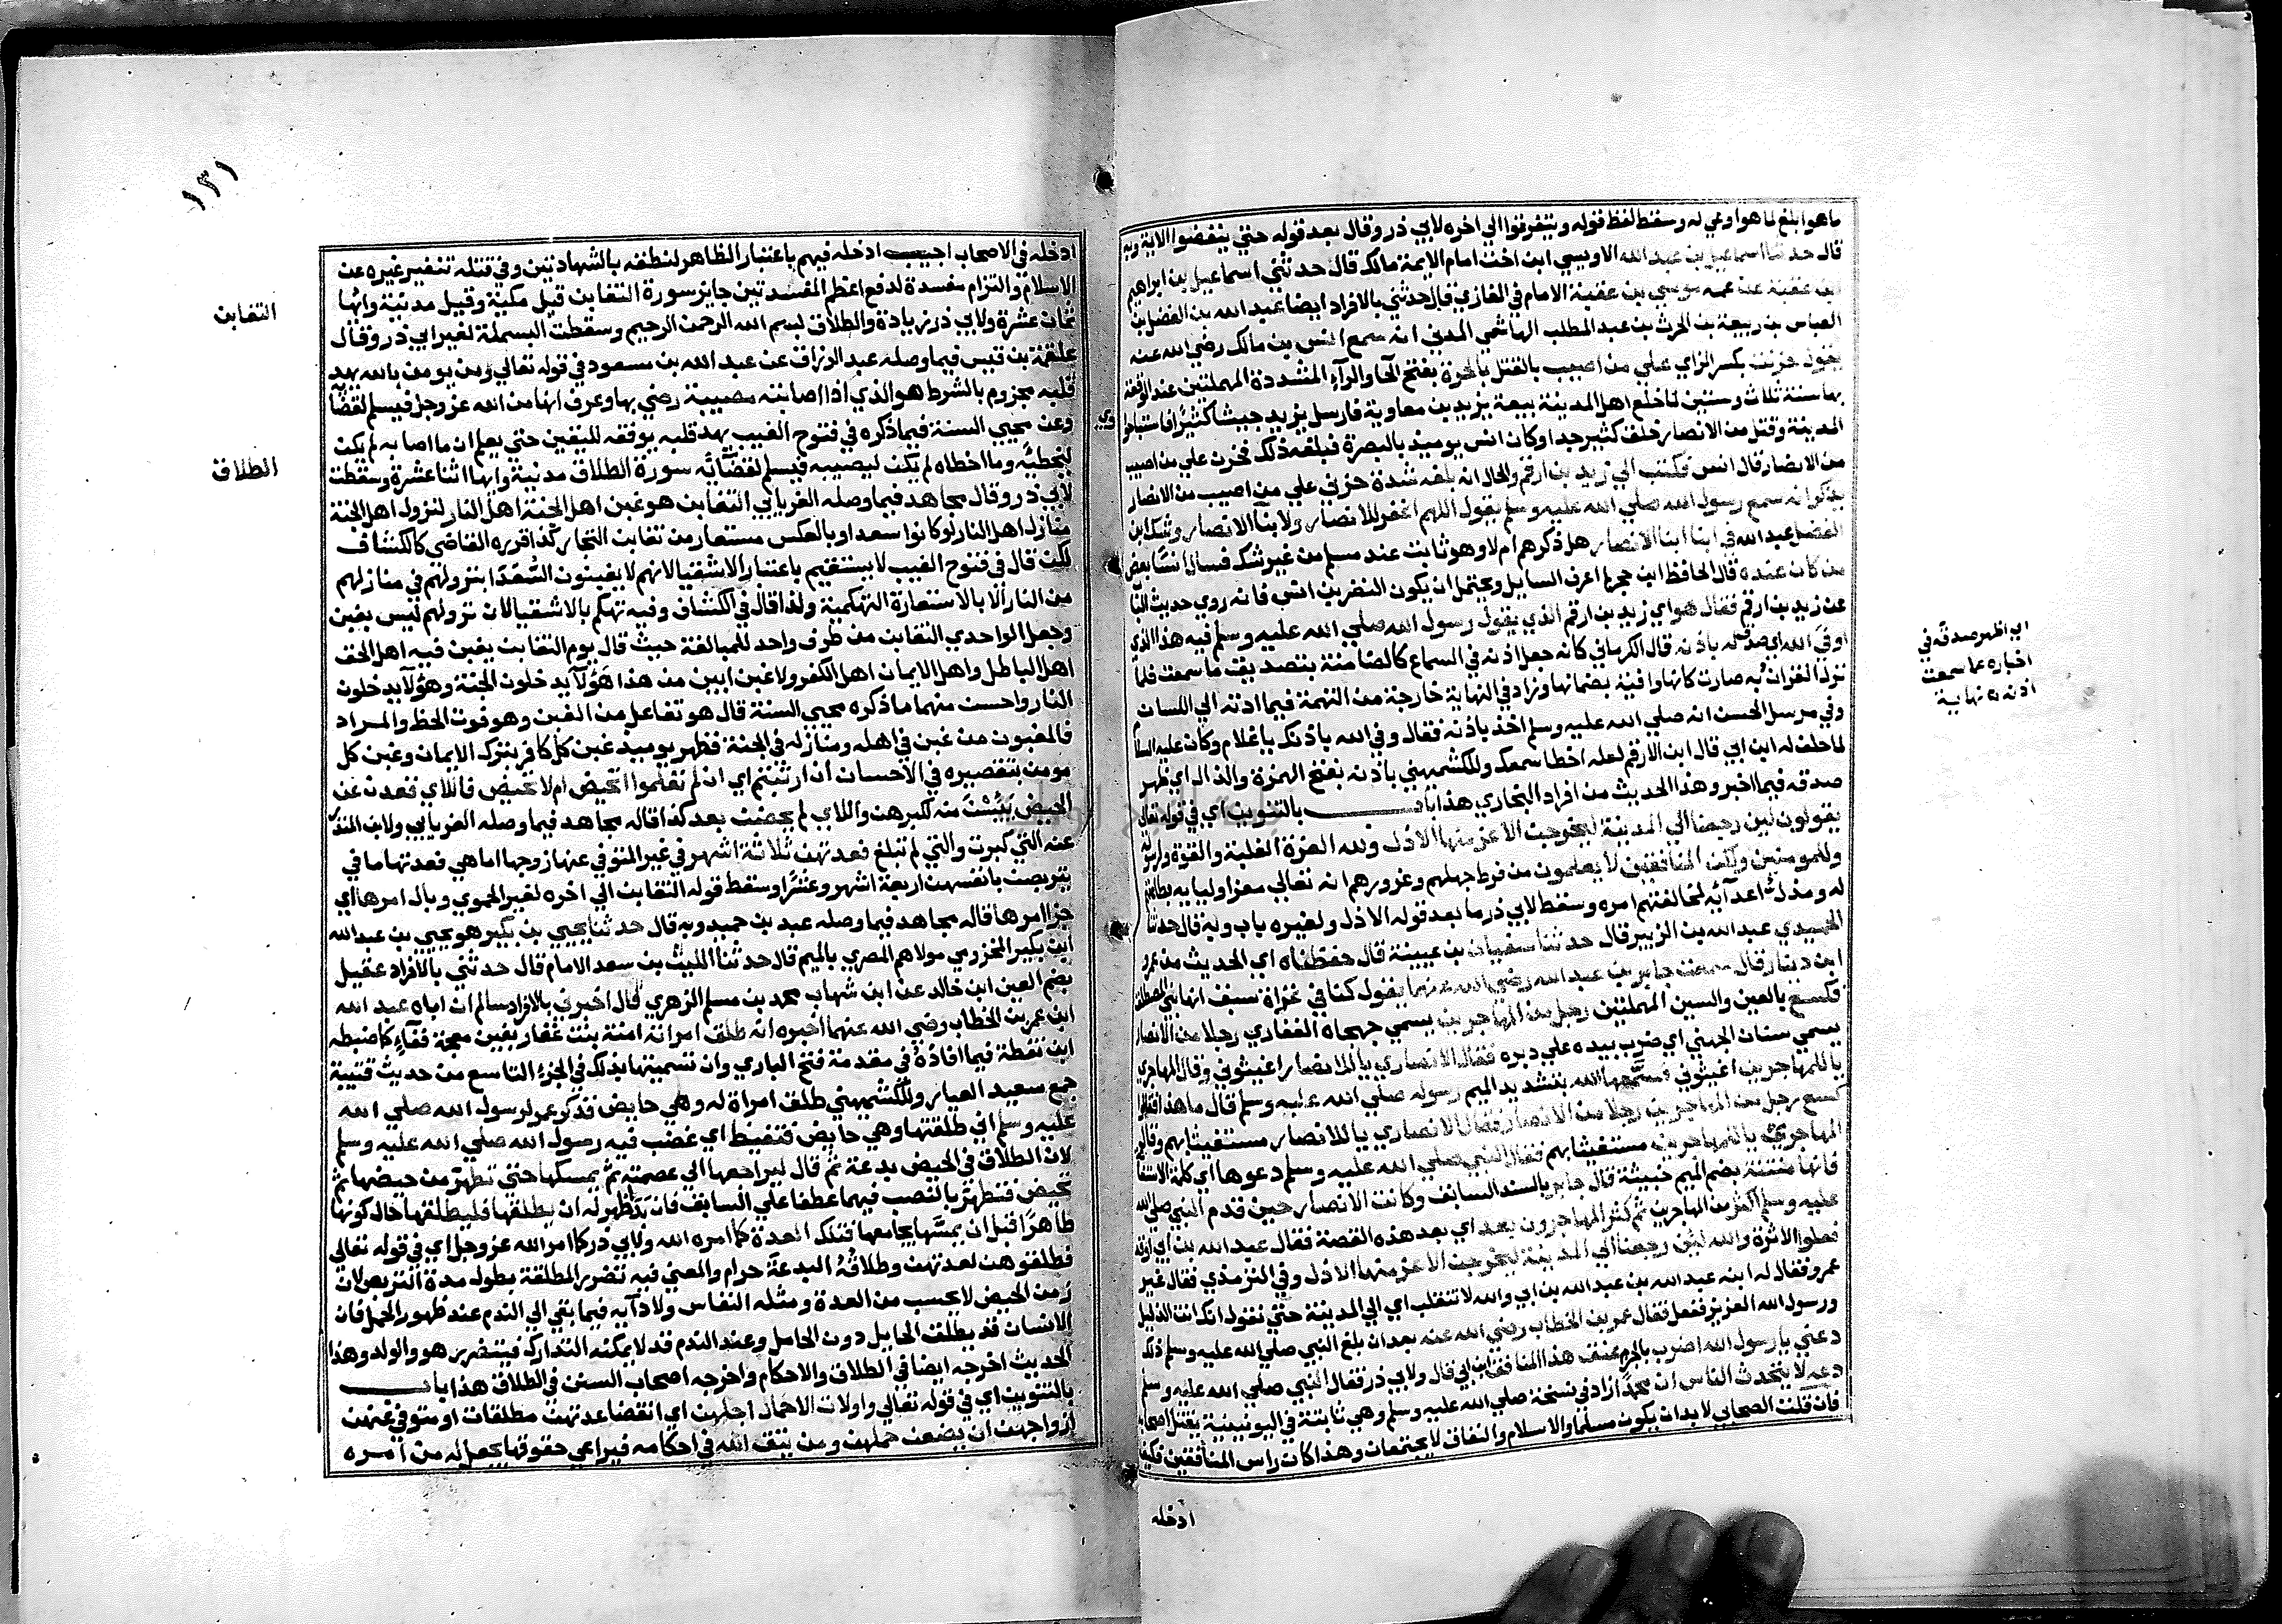 ما هو ابلغ لما هو اوعي له وسقط لفظ قوله ويتفرقوا الي اخره لابي ذر وقال بعد قوله حتي ينفضوا الاية وبه
قال حدثنا اسماعيل بن عبد الله الاويسي ابن اخت امام الايمة مالك قال حدثني اسماعيل بن ابراهيم
ابن عقبة عن عمه موسي بن عقبة الامام في المغازي قال حدثني بالافراد ايضا عبد الله بن الفضل بن
العباس بن ربيعة بن الحرث بن عبد المطلب الهاشمي المدني انه سمع انس بن مالك رضي الله عنه
يقول حزنت بكسر الزاي علي من اصيب بالقتل بالحرة بفتح الحا والرآء المشددة المهملتين عند الوقعة
بها سنة ثلاث وستين لما خلع اهل المدينة بيعة يزيد بن معاوية فارسل يزيد جيشا كثيرًا فاستباحوا
المدينة وقتل من الانصار خلف كثير جدا وكان انس يوميذ بالبصرة فبلغه ذلك فحزن علي من اصيب
من الانصار قال انس فكتب الي زيد بن ارقم والحال انه بلغه شدة حزني علي من اصيب من الانصار
يذكر انه سمع رسول الله صلي الله عليه وسلم يقول اللهم اغفر للانصار ولابنآ الانصار وشك ابن
الفضل عبد الله في ابنا ابنا الانصار هل ذكرهم ام لا وهو ثابت عند مسلم من غير شك فسال انسًا بعض
من كان عنده قال الحافظ ابن حجر لم اعرف السايل ويحتمل ان يكون النضر بن انس فانه روي حديث البا
عن زيد بن ارقم فقال هو اي زيد بن ارقم الذي يقول رسول الله صلي الله عليه وسلم فيه هذا الذي
اوفي الله اي صدق له باذنه قال الكرماني كانه جعل اذنه في السماع كالضامنة بتصديق ما سمعت فلما
نزل القران به صارت كانها وافية بضمانها وزاد في النهاية خارجة من التهمة فيما ادته الي اللسان
وفي مرسل الحسن انه صلي الله عليه وسلم اخذ باذنه فقال وفي الله باذنك يا غلام وكان عليه السلام
لما حلف له ابن ابي قال ابن الارقم لعله اخطا سمعك وللكشميهني باذنه بفتح الهمزة والذال اي ظهر
صدقه فيما اخبر وهذا الحديث من افراد البخاري هذا باب بالتنوين اي في قوله تعالي
يقولون لين رجعنا الي المدينة ليخرجن الاعز منها الاذل ولله العزة الغلبة والقوة ولرسوله
وللمومنين ولكن المنافقين لا يعلمون من فرط جهلهم وغرورهم انه تعالي معز اوليايه بطاعتهم
له ومذل اعدآيه لمخالفتهم امره وسقط لابي ذر ما بعد قوله الاذل ولغيره باب وبه قال حدثنا
الحميدي عبد الله بن الزبير قال حدثنا سفيان بن عيينة قال حفظناه اي الحديث من عمرو
ابن دينار قال سمعت جابر بن عبد الله رضي الله عنهما يقول كنا في غزاة سبق انها بني المصطلق
فكسع بالعين والسين المهملتين رجل من المهاجرين يسمي جهجاه الغفاري رجلا من الانصار
يسمي سنان الجهني اي ضرب بيده علي دبره فقال الانصاري يا للانصار اغيثوني وقال المهاجري
يا للمهاجرين اغيثوني فسمَّعها الله بتشديد الميم رسوله صلي الله عليه وسلم قال ما هذا فقالوا
كسع رجل من المهاجرين رجلا من الانصار فقال الانصاري يا للانصار مستغيثا بهم وقال
المهاجري يا للمهاجرين مستغيثا بهم فقال النبي صلي الله عليه وسلم دعوها اي كلمة الاستغا
فانها منتنة بضم الميم خبيثة قال جابر بالسند السابق وكانت الانصار حين قدم النبي صلي الله
عليه وسلم اكثر من المهاجرين ثم كثر المهاجرون بعد اي بعد هذه القصة فقال عبد الله بن ابي اوقد
فعلوا الاثرة والله لين رجعنا الي المدينة ليخرجن الاعز منها الاذل وفي الترمذي فقال غير
عمرو فقال له ابنه عبد الله بن عبد الله بن ابي والله لا تنقلب اي الي المدينة حتي تقول انك انت الذليل
ورسول الله العزيز ففعل فقال عمر بن الخطاب رضي الله عنه بعد ان بلغ النبي صلي الله عليه وسلم ذلك
دعني يا رسول الله اضرب بالجزم عنق هذا المنافق ابن ابي قال ولابي ذر فقال النبي صلي الله عليه وسلم
دعه لا يتحدث الناس ان محمدًا زاد في نسخة صلي الله عليه وسلم وهي ثابتة في اليونينية يقتل اصحابه
فان قلت الصحابي لا بد ان يكون مسلما والاسلام والنفاق لا يجتمعان وهذا كان راس المنافقين فكيف
ادخله
اي اظهر صدقه في
اخباره عما سمعت
اذنه نهاية
١٣١
ادخله في الاصحاب اجيب ادخله فيهم باعتبار الظاهر لنطقه بالشهادتين وفي قتله تنفير غيره عن
الاسلام والتزام مفسدة لدفع اعظم المفسدتين جايز سورة التغابن قيل مكية وقيل مدنية وايها
ثمان عشرة ولابي ذر زيادة والطلاق بسم الله الرحمن الرحيم وسقطت البسملة لغير ابي ذر وقال
علقمة بن قيس فيما وصله عبد الرزاق عن عبد الله بن مسعود في قوله تعالي ومن يومن بالله يهد
قلبه مجزوم بالشرط هو الذي اذا اصابته مصيبة رضي بها وعرف انها من الله عز وجل فيسلم لقضآ
وعن محيي السنة فيما ذكره في فتوح الغيب يهد قلبه يوفقه لليقين حتي يعلم ان ما اصابه لم يكن
ليخطيَه وما اخطاه لم يكن ليصيبه فيسلم لقضآئه سورة الطلاق مدنية وايها اثنا عشرة وسقطت
لابي ذر وقال مجاهد فيما وصله الفريابي التغابن هو غبن اهل الجنة اهل النار لنزول اهل الجنة
منازل اهل النار لو كانوا سعدا وبالعكس مستعار من تغابن التجار كذا قرره القاضي كالكشاف
لكن قال في فتوح الغيب لا يستقيم باعتبار الاشقيا لانهم لا يغبنون السُّعَدَا بنزولهم في منازلهم
من النار الا بالاستعارة التهكمية ولذا قال في الكشاف وفيه تهكم بالاشقيا لان نزولهم ليس بغبن
وجعل الواحدي التغابن من طرف واحد للمبالغة حيث قال يوم التغابن يغبن فيه اهل الحق
اهل الباطل واهل الايمان اهل الكفر ولا غبن ابين من هذا هؤلآ يدخلون الجنة وهؤلآ يدخلون
النار واحسن منهما ما ذكره محيي السنة قال هو تفاعل من الغبن وهو فوت الحظ والمراد
فالمغبون من غبن في اهله ومنازله في الجنة فظهر يوميذ غبن كل كافر بترك الايمان وغبن كل
مومن بتقصيره في الاحسان ان ارتبتم اي ان لم تعلموا اتحيض ام لا تحيض فاللاي قعدن عن
الحيض يئسن منه لكبرهن واللاي لم يحضن بعد كذا قاله مجاهد فيما وصله الفريابي ولابن المنذر
عنه التي كبرت والتي لم تبلغ فعدتهن ثلاثة اشهر في غير المتوفي عنها زوجها اما هي فعدتها ما في
يتربصن بانفسهن اربعة اشهر وعشرًا وسقط قوله التغابن الي اخره لغير الحموي وبال امرها اي
جزا امرها قاله مجاهد فيما وصله عبد بن حميد وبه قال حدثنا يحيي بن بكير هو يحيي بن عبد الله
ابن بكير المخزومي مولاهم المصري بالميم قال حدثنا الليث بن سعد الامام قال حدثني بالافراد عقيل
بضم العين ابن خالد عن ابن شهاب محمد بن مسلم الزهري قال اخبرني بالافراد سالم ان اباه عبد الله
ابن عمر بن الخطاب رضي الله عنهما اخبره انه طلق امراته امنة بنت غفار بغين معجمة ففآء كما ضبطه
ابن نقطة فيما افاده في مقدمة فتح الباري وان تسميتها بذلك في الجزء التاسع من حديث قتيبة
جمع سعيد العيار وللكشميهني طلق امراة له وهي حايض فذكر عمر لرسول الله صلي الله
عليه وسلم اني طلقتها وهي حايض فتغيظ اي غضب فيه رسول الله صلي الله عليه وسلم
لان الطلاق في الحيض بدعة ثم قال ليراجعها الي عصمته ثم يمسكها حتي تطهر من حيضها ثم
تحيض فتطهر بالنصب فيهما عطفا علي السابق فان بدا ظهر له ان يطلقها فليطلقها حال كونها
طاهرًا قبل ان يمسَّها يجامعها فتلك العدة كما امره الله ولابي ذر كما امر الله عز وجل اي في قوله تعالي
فطلقوهن لعدتهن وطلاقُه البدعة حرام والمعني فيه تضرر المطلقة بطول مدة التربص لان
زمن الحيض لا يحسب من العدة ومثله النفاس ولادآيه فيما بقي الي الندم عند ظهور الحمل فان
الانسان قد يطلق الحايل دون الحامل وعند الندم قد لا يمكنه التدارك فيتضرر هو والولد وهذا
الحديث اخرجه ايضا في الطلاق والاحكام واخرجه اصحاب السنن في الطلاق هذا باب
بالتنوين اي في قوله تعالي واولات الاحمال اجلهن اي انقضا عدتهن مطلقات او متوفي عنهن
ازواجهن ان يضعن حملهن ومن يتق الله في احكامه فيراعي حقوقها يجعل له من امره
التغابن
الطلاق